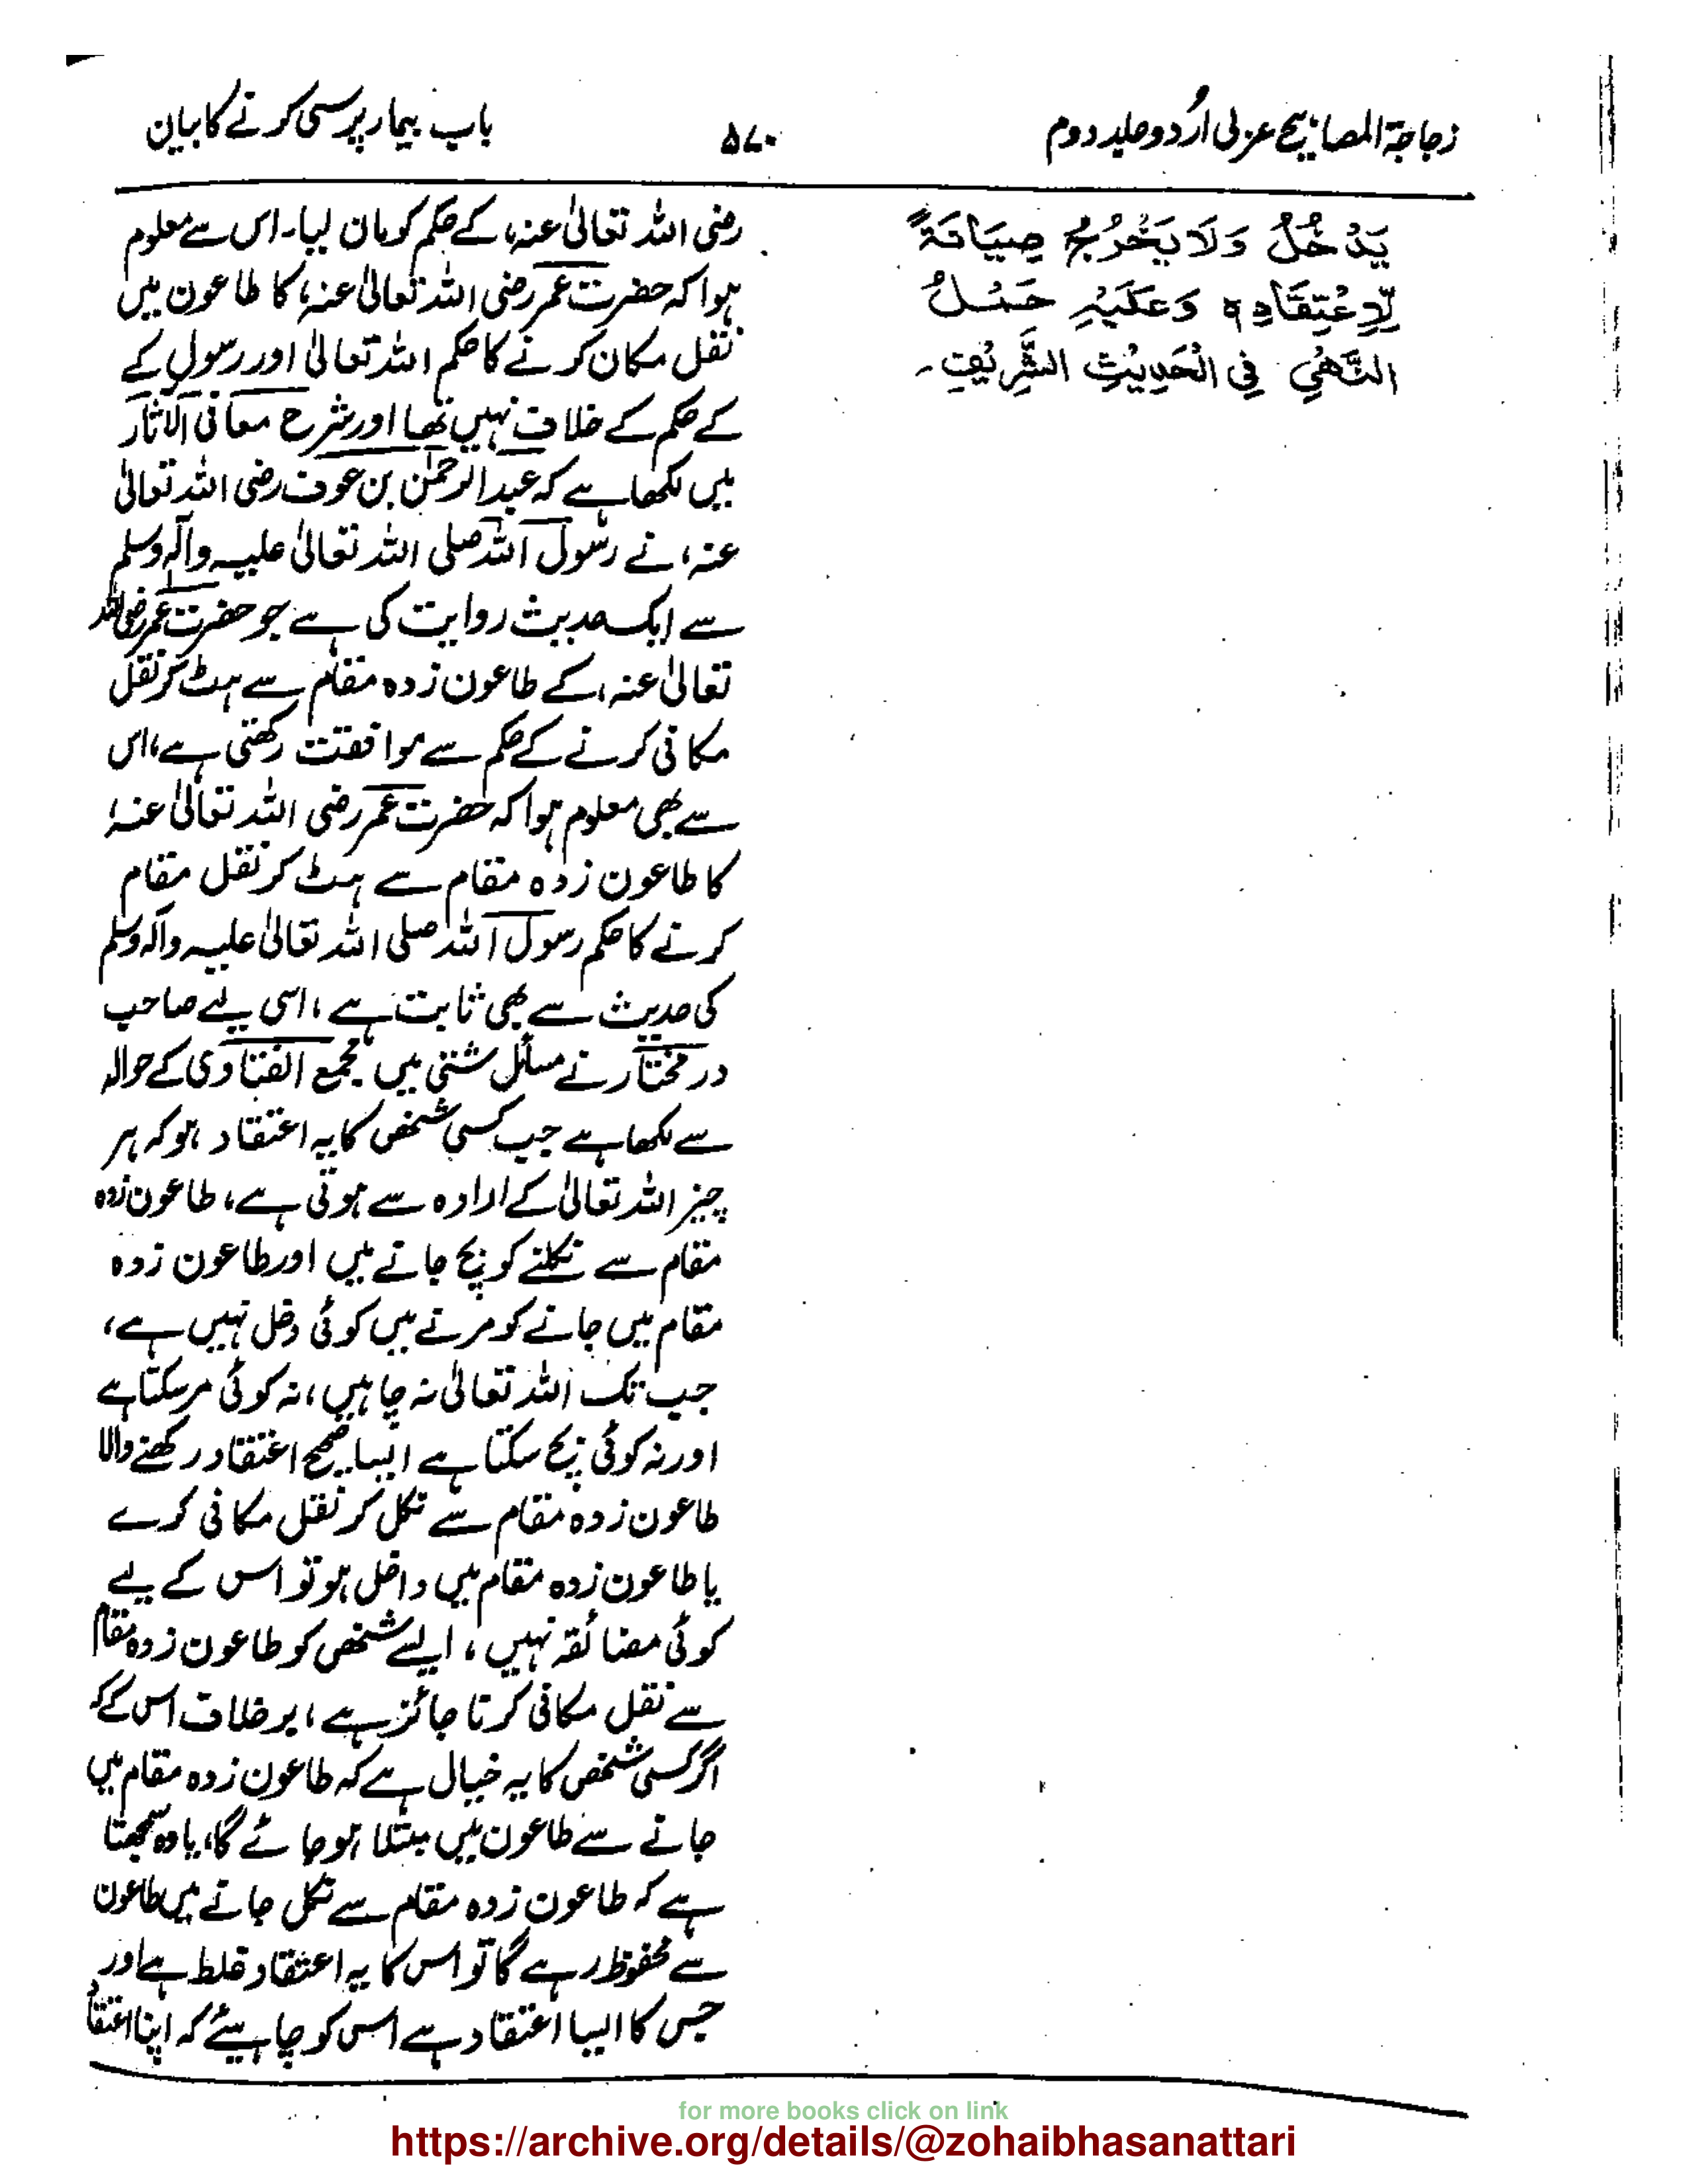 زجاجۃ المصابیح عربی اُردو جلد دوم
۵۷۰
باب بیمار پرسی کرنے کا بیان
يَدْخُلُ وَلَا يَخْرُجُ صِيَانَةً
لِّاِعْتِقَادِهٖ وَعَلَيْهِ حَمْلُ
النَّهْيِ فِی الْحَدِيْثِ الشَّرِيْفِ۔
رضی اللہ تعالیٰ عنہ، کے حکم کو مان لیا۔ اس سے معلوم
ہوا کہ حضرت عمر رضی اللہ تعالیٰ عنہ، کا طاعون میں
نقل مکان کرنے کا حکم اللہ تعالیٰ اور رسول کے
کے حکم کے خلاف نہیں تھا اور شرح معانی الآثار
میں لکھا ہے کہ عبدالرحمٰن بن عوف رضی اللہ تعالیٰ
عنہ، نے رسول اللہ صلی اللہ تعالیٰ علیہ وآلہ وسلم
سے ایک حدیث روایت کی ہے جو حضرت عمر رضی اللہ
تعالیٰ عنہ، کے طاعون زدہ مقام سے ہٹ کر نقل
مکانی کرنے کے حکم سے موافقت رکھتی ہے، اس
سے بھی معلوم ہوا کہ حضرت عمر رضی اللہ تعالیٰ عنہٗ
کا طاعون زدہ مقام سے ہٹ کر نقل مقام
کرنے کا حکم رسول اللہ صلی اللہ تعالیٰ علیہ وآلہ وسلم
کی حدیث سے بھی ثابت ہے، اسی لیے صاحب
در مختار نے مسائل شتیٰ میں مجمع الفتاوی کے حوالہ
سے لکھا ہے جب کسی شخص کا یہ اعتقاد ہو کہ ہر
چیز اللہ تعالیٰ کے ارادہ سے ہوتی ہے، طاعون زدہ
مقام سے نکلنے کو بچ جانے میں اور طاعون زدہ
مقام میں جانے کو مرنے میں کوئی دخل نہیں ہے،
جب تک اللہ تعالیٰ نہ چاہیں، نہ کوئی مرسکتا ہے
اور نہ کوئی بچ سکتا ہے ایسا صحیح اعتقاد رکھنے والا
طاعون زدہ مقام سے نکل کر نقل مکانی کرے
یا طاعون زدہ مقام میں داخل ہو تو اس کے لیے
کوئی مضائقہ نہیں، ایسے شخص کو طاعون زدہ مقام
سے نقل مکانی کرنا جائز ہے، برخلاف اس کے کہ
اگر کسی شخص کا یہ خیال ہے کہ طاعون زدہ مقام میں
جانے سے طاعون میں مبتلا ہو جائے گا، یا وہ سمجھتا
ہے کہ طاعون زدہ مقام سے نکل جانے میں طاعون
سے محفوظ رہے گا تو اس کا یہ اعتقاد غلط ہے اور
جس کا ایسا اعتقاد ہے اس کو چاہیئے کہ اپنا اعتقاد
for more books click on link
https://archive.org/details/@zohaibhasanattari